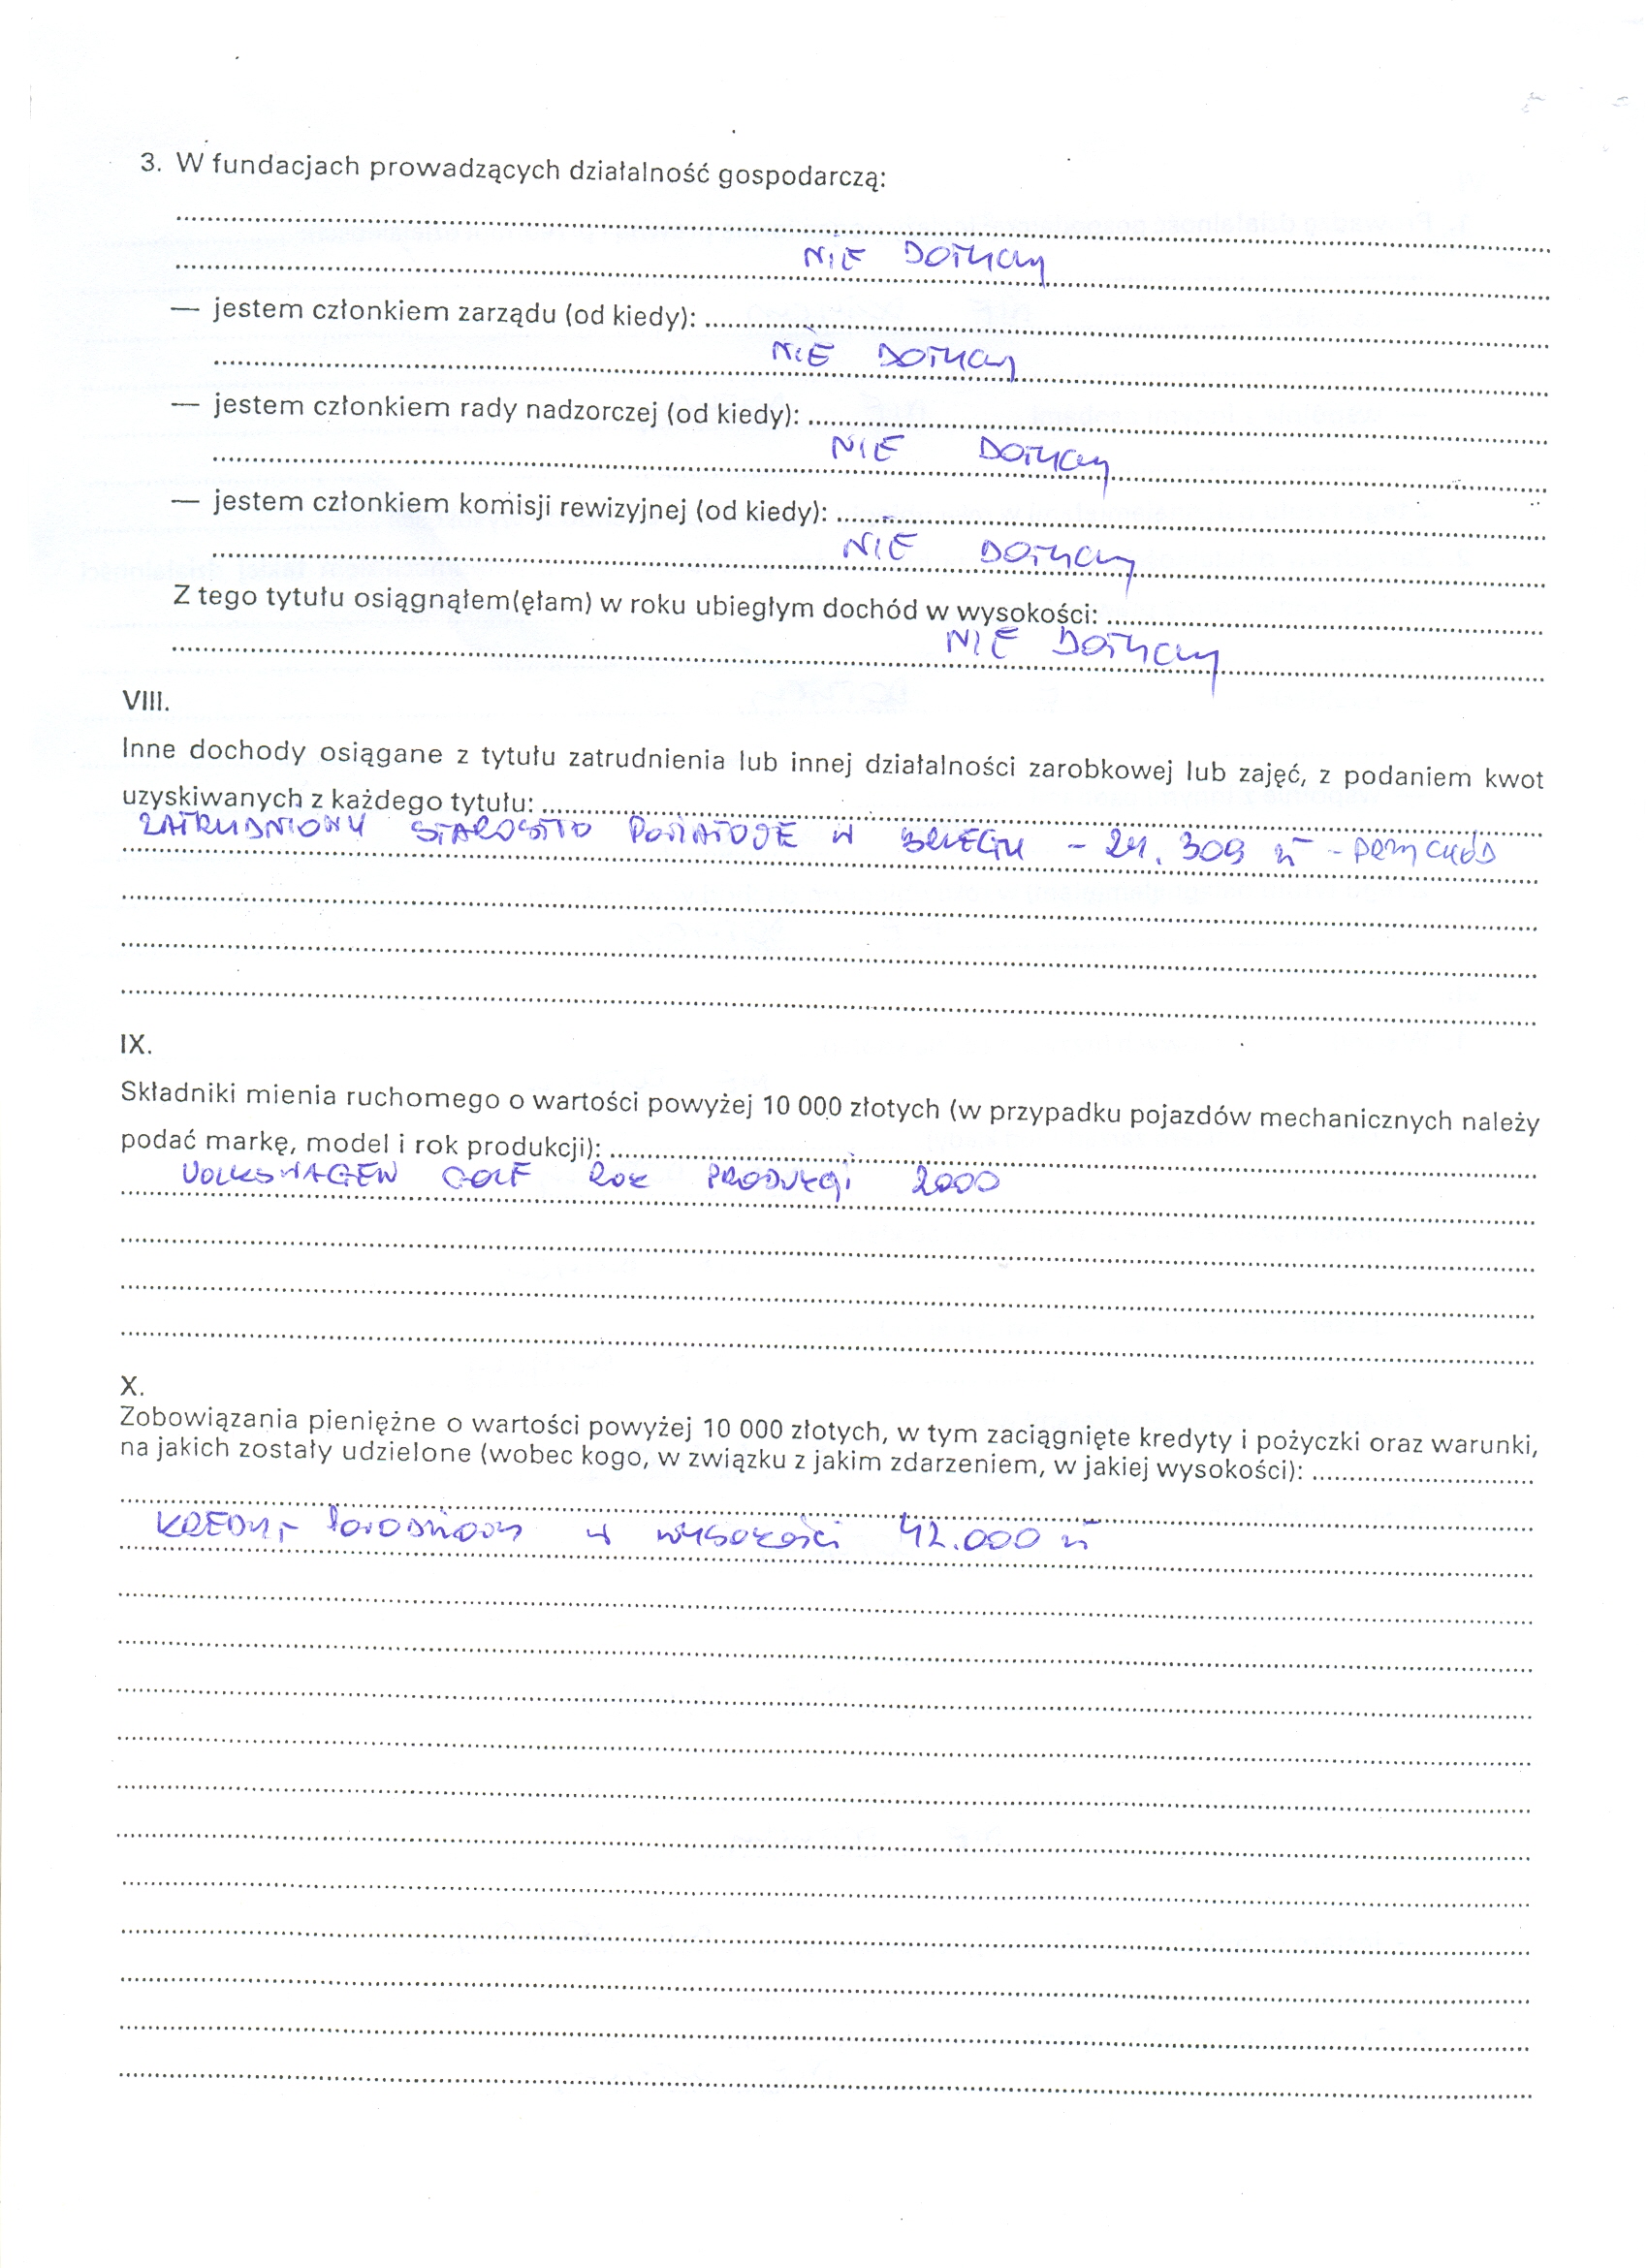 3. W fundacjach prowadzących działalność gospodarczą:
NIE DOTYCZY
— jestem członkiem zarządu (od kiedy):
NIE DOTYCZY
— jestem członkiem rady nadzorczej (od kiedy):
NIE DOTYCZY
— jestem członkiem komisji rewizyjnej (od kiedy):
NIE DOTYCZY
Z tego tytułu osiągnąłem(ęłam) w roku ubiegłym dochód w wysokości:
NIE DOTYCZY
VIII.
Inne dochody osiągane z tytułu zatrudnienia lub innej działalności zarobkowej lub zajęć, z podaniem kwot
uzyskiwanych z każdego tytułu:
ZATRUDNIONY STAROSTWO POWIATOWE W BRZEGU - 24.309 zł - PRZYCHÓD
IX.
Składniki mienia ruchomego o wartości powyżej 10 000 złotych (w przypadku pojazdów mechanicznych należy
podać markę, model i rok produkcji):
VOLKSWAGEN GOLF ROK PRODUKCJI 2000
X.
Zobowiązania pieniężne o wartości powyżej 10 000 złotych, w tym zaciągnięte kredyty i pożyczki oraz warunki,
na jakich zostały udzielone (wobec kogo, w związku z jakim zdarzeniem, w jakiej wysokości):
KREDYT w wysokości 42.000 zł